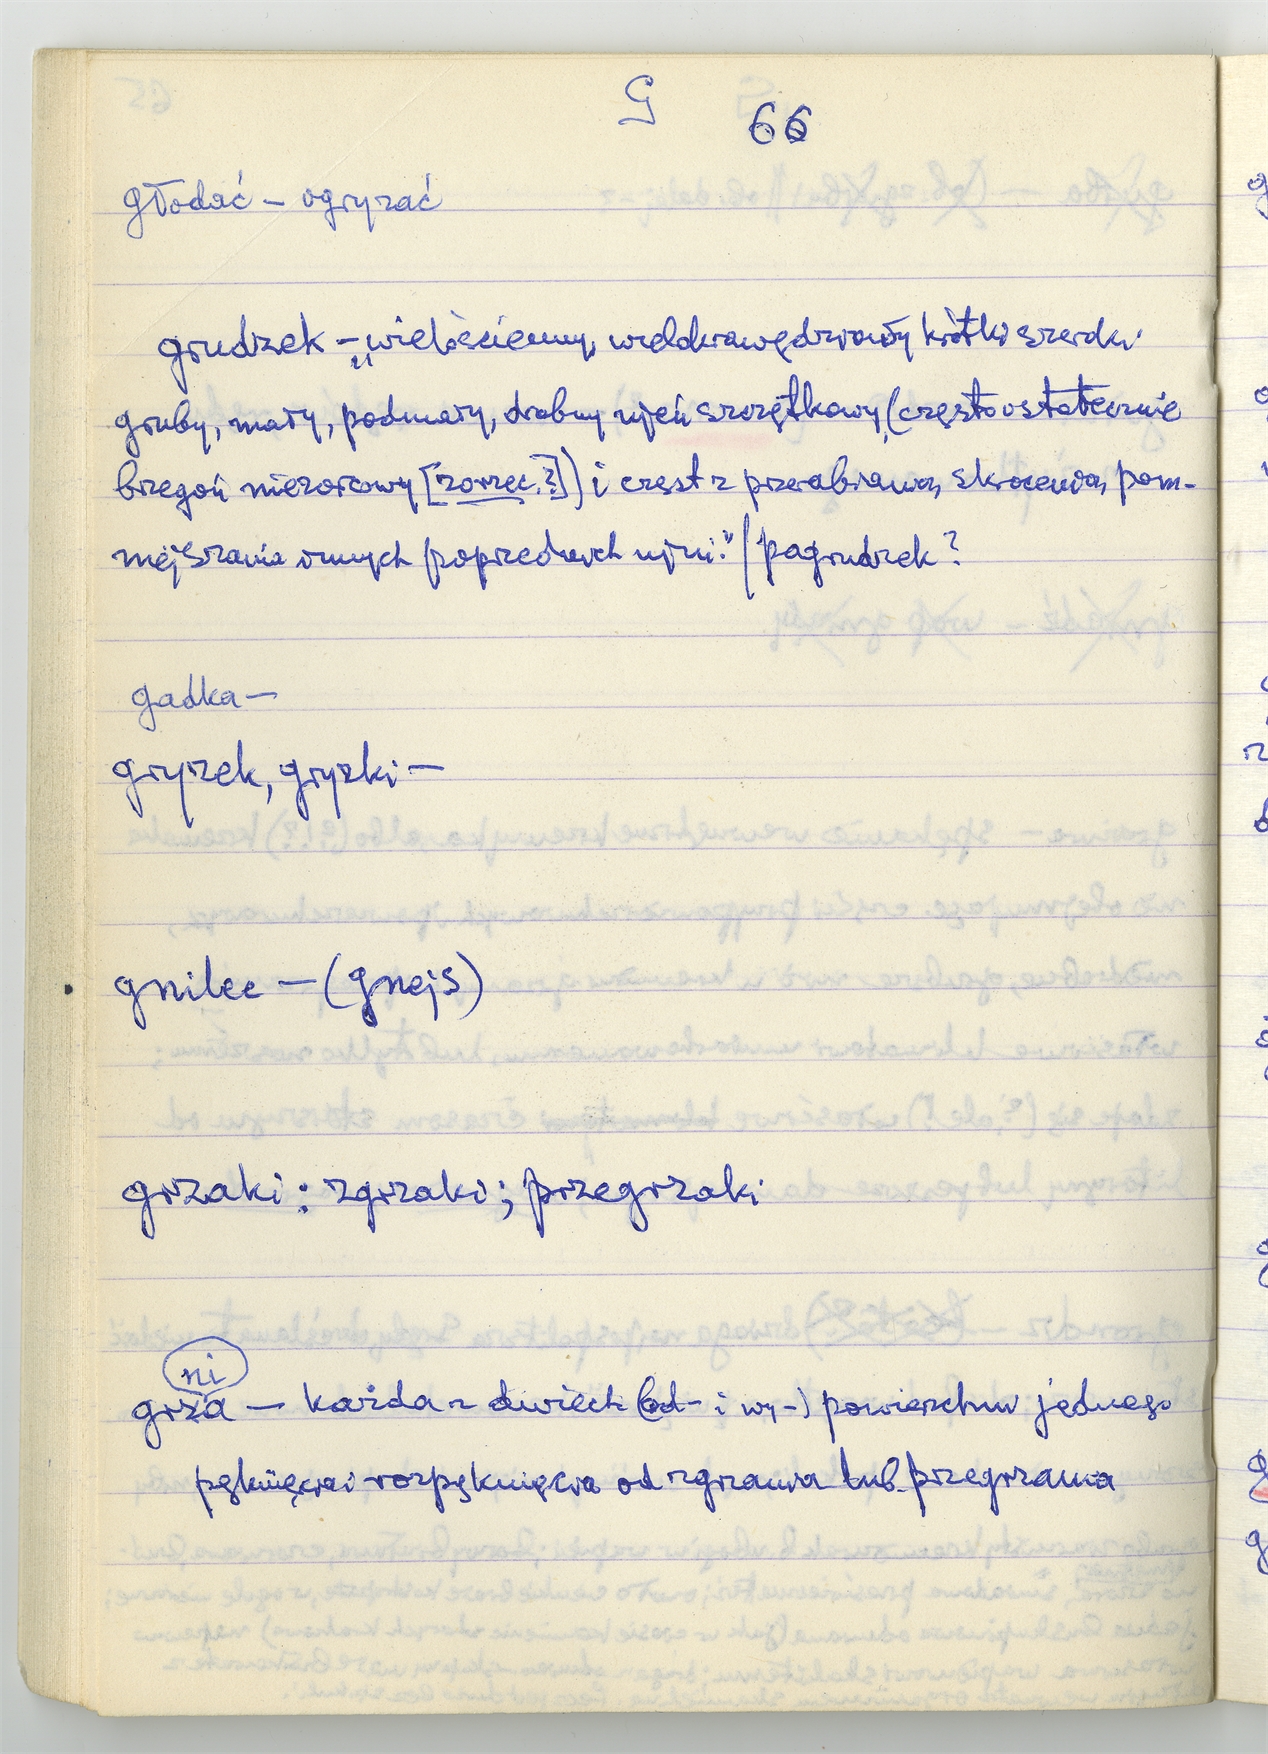 G 66
głodać – ogryzać
grudzek – „wielościenny, wielokrawędziowy krótki szeroki
gruby, mały, podmały, drobny rdzeń szczętkowy, (często ostatecznie
brzegoń niezorcowy [zorzec.?]) i częst z przerabiania, skrócenia, pom-
niejszania innych poprzednich rdzeni." / pagrudzek?
gadka –
gryzek, gryzki –
gnilec – (gnejs)
grzaki : zgrzaki ; przegrzaki
ni
grza – każda z dwiech (od- i wy-) powierzchni jednego
pęknięcia i rozpęknięcia od zgrzania lub przegrzania